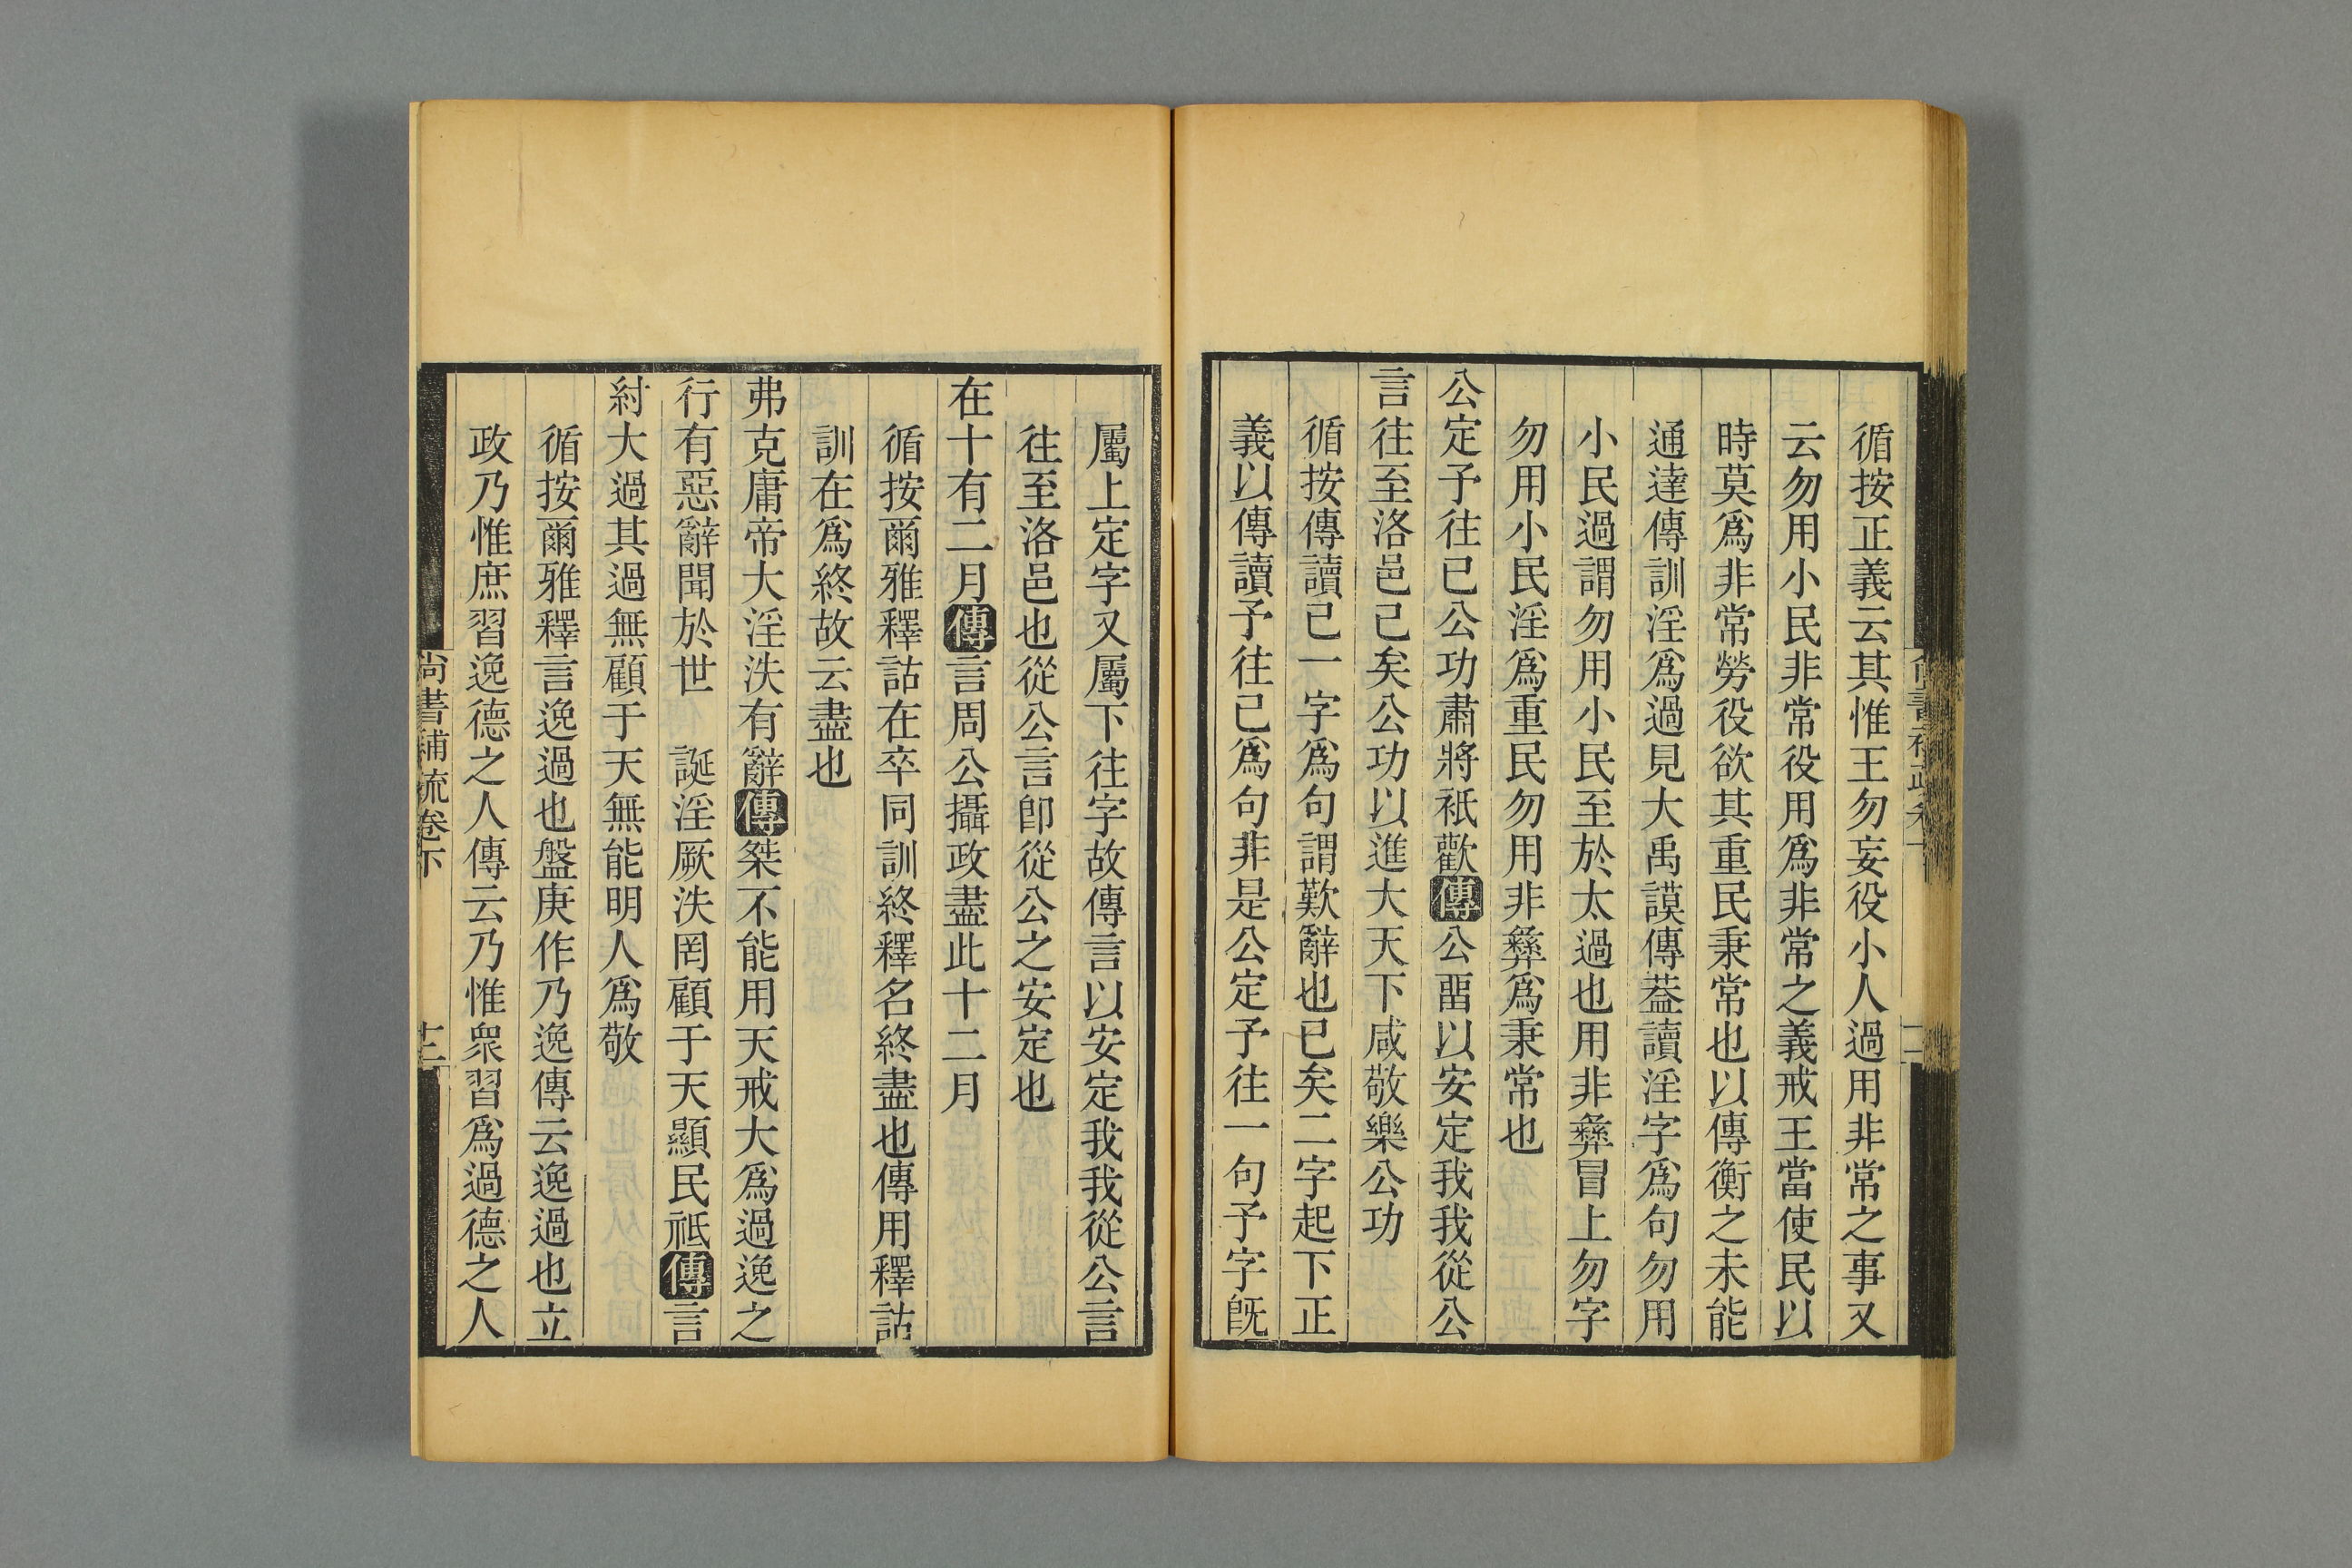 循按正義云其惟王勿妄役小人過用非常之事又
云勿用小民非常役用爲非常之義戒王當使民以
時莫爲非常勞役欲其重民秉常也以傳衡之未能
通達傳訓淫爲過見大禹謨傳葢讀淫字爲句勿用
小民過謂勿用小民至於太過也用非彝冒上勿字
勿用小民淫爲重民勿用非彝爲秉常也
公定予往已公功肅將祗歡傳公畱以安定我我從公
言往至洛邑已矣公功以進大天下咸敬樂公功
循按傳讀已一字爲句謂歎辭也已矣二字起下正
義以傳讀予往已爲句非是公定予往一句予字旣
屬上定字又屬下往字故傳言以安定我我從公言
往至洛邑也從公言卽從公之安定也
在十有二月傳言周公攝政盡此十二月
循按爾雅釋詁在卒同訓終釋名終盡也傳用釋詁
訓在爲終故云盡也
弗克庸帝大淫泆有辭傳桀不能用天戒大爲過逸之
行有惡辭聞於世　誕淫厥泆罔顧于天顯民祗傳言
紂大過其過無顧于天無能明人爲敬
循按爾雅釋言逸過也盤庚作乃逸傳云逸過也立
政乃惟庶習逸德之人傳云乃惟衆習爲過德之人
尚書補疏卷下
十二